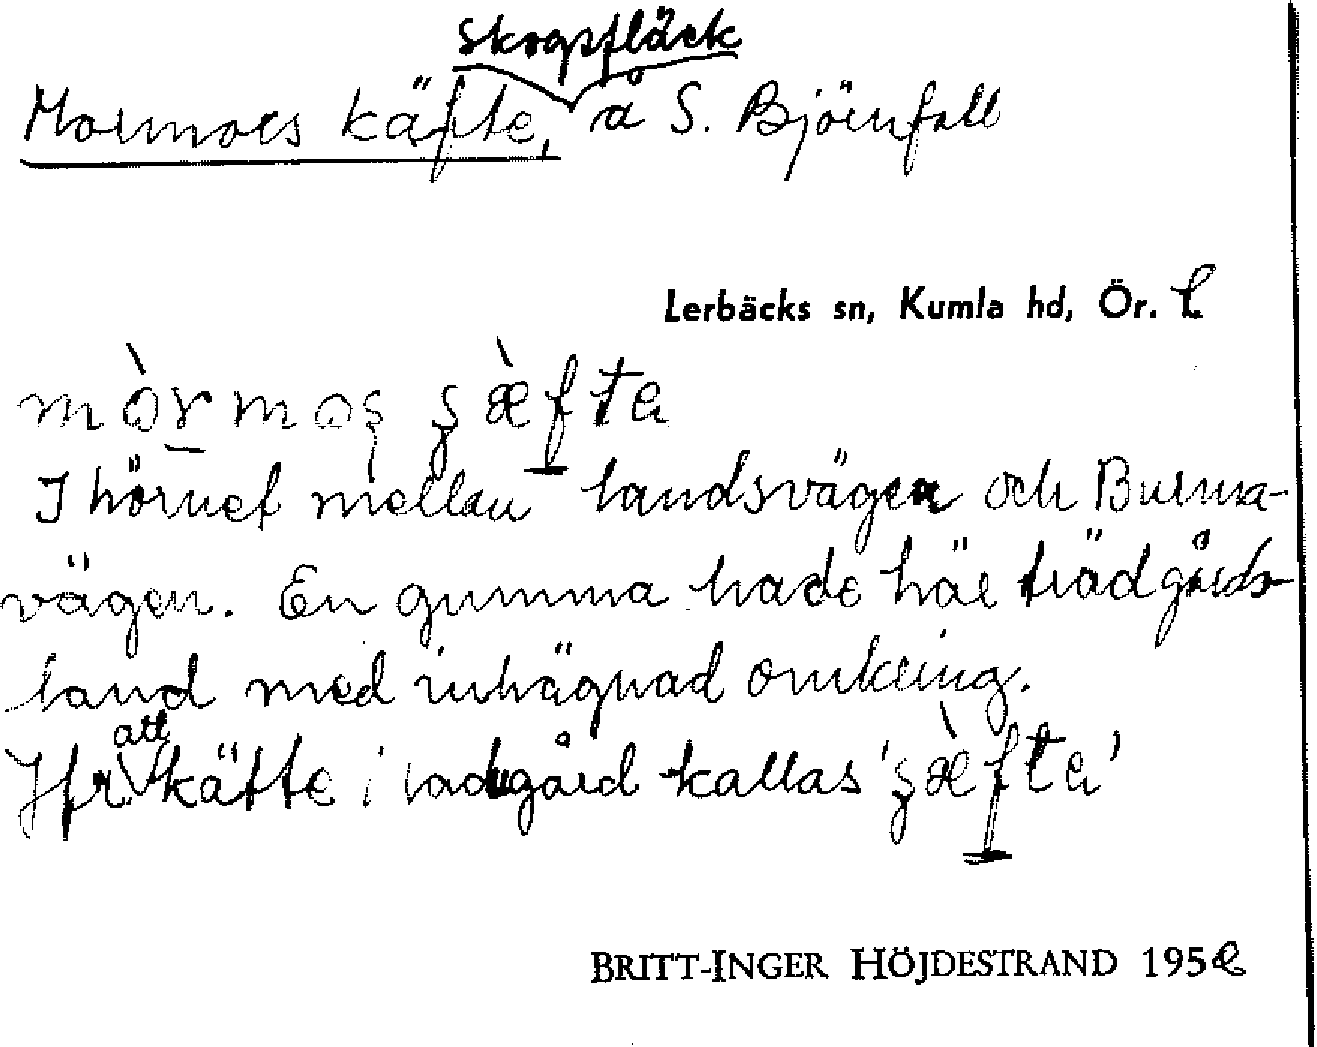 skogsfläck
Mormors käfte, å S. Björnfall
Lerbäcks sn, Kumla hd, Ör. l.
I hörnet mellan landsvägen och Burma-
vägen. En gumma hade här trädgårds-
land med inhägnad omkring.
Jfr att kätte i ladugård kallas
BRITT-INGER HÖJDESTRAND 195